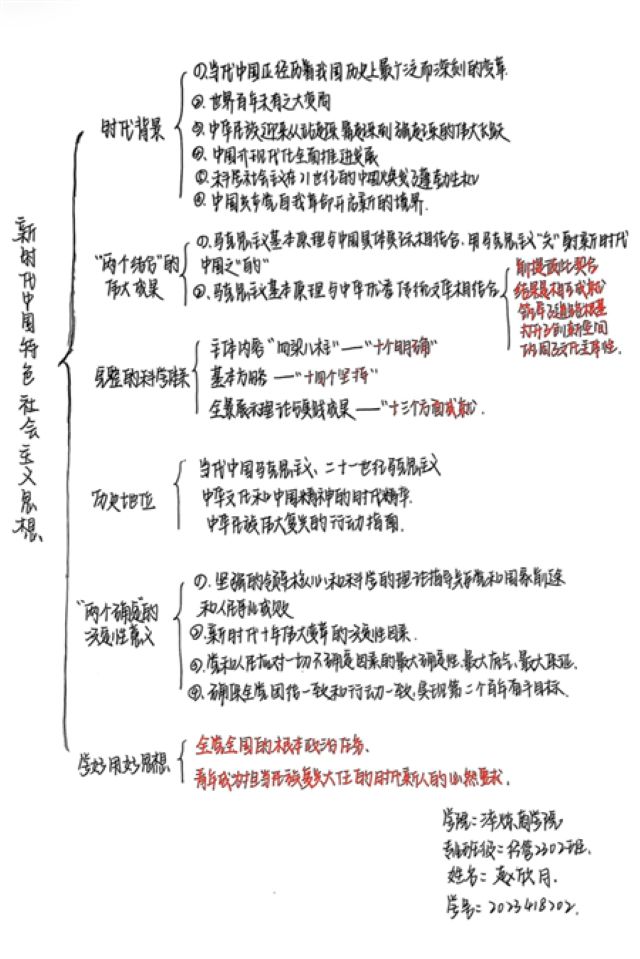 新时代中国特色社会主义思想
时代背景
①.当代中国正经历着我国历史上最广泛而深刻的变革.
②.世界百年未有之大变局
③.中华民族迎来从站起来、富起来到强起来的伟大飞跃
④.中国式现代化全面推进发展
⑤.科学社会主义在21世纪的中国焕发了蓬勃生机
⑥.中国共产党自我革命开启新的境界.
"两个结合"的
伟大成果
①.马克思主义基本原理与中国具体实际相结合,用马克思主义"矢"射新时代
中国之"的"
②.马克思主义基本原理与中华优秀传统文化相结合
前提是彼此契合
结果是互相成就
筑牢了道路根基
打开了创新空间
巩固了文化主体性.
完整的科学体系
主体内容"四梁八柱"——"十个明确"
基本方略——"十四个坚持"
全景展示理论与实践成果——"十三个方面成就.
历史地位
当代中国马克思主义、二十一世纪马克思主义
中华文化和中国精神的时代精华.
中华民族伟大复兴的行动指南.
"两个确立"的
决定性意义
①.坚强的领导核心和科学的理论指导关乎党和国家前途
和人民事业成败
②.新时代十年伟大变革的决定性因素.
③.党和人民应对一切不确定因素的最大确定性、最大底气、最大保证.
④.确保全党团结一致和行动一致,实现第二个百年奋斗目标.
学好用好思想
全党全国的根本政治任务.
青年成为担当民族复兴大任的时代新人的必然要求.
学院:
专业班级:行管2302班.
姓名:赵欣月.
学号:2023418202.